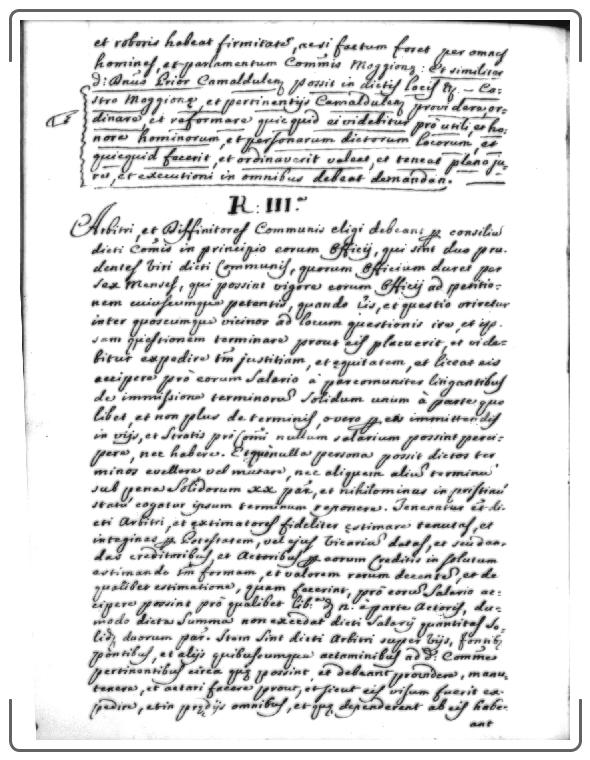 et roboris habeat firmitatẽ, ac si factum foret per omnes
homines, et parlamentum Com̃nis Moggionę: Et similiter
d: Dnũs Prior Camaldulen̄ possit in dictis locis – Ca-
stro Moggionę, et pertinentijs Camaldulen̄ providere, or-
dinare et reformare quicquid ei videbitur prò utili, et ho-
nore hominorum, et personarum dictorum locorum, et
quicquid fecerit, et ordinaverit valeat, et teneat pleno ju-
re, et executioni in omnibus debeat demandari.
R: III.a
Arbitri, et Diffinitores Communis eligi debeant p̱ consiliũ
dicti Com̃is in principio eorum Officij, qui sint duo pru-
dentes Viri dicti Communis, quorum Officium duret per
sex Menses, qui possint vigore eorum Officij ad petitio-
nem cuiuscumque petentis, quando lis, et questio oriretur
inter quoscumque vicinos ad locum questionis ire, et ip-
sam questionem terminare prout eis placuerit, et vide-
bitur expedire t̃m justitiam, et equitatem, et liceat eis
accipere prò eorum Salario à partibus litigantibus
de immissione terminorũ Solidum unum à parte qua
libet, et non plus de terminis, overo p̱ eos immittendis
in vijs, et Stratis prò Com̃i nullum salarium possint perci-
pere, nec habere. Et quòd nulla persona possit dictos ter
minos evellere vel mutare, nec aliquem aliũ terminũ
sub pena Solidorum xx pãr, et nihilominus in pristinũ
statũ cogatur ipsum terminum reponere. Teneantur et di-
cti Arbitri, et extimatores fideliter estimare tenutas, et
integines p̱ Potestatem, vel ejus Vicariũ datas, et seu dan-
das creditoribus, et Actoribus p̱ eorum Creditis in solutum
estimando t̃m formam, et valorem rerum decentẽ, et de
qualibet estimatione, quam fecerint, prò eorũ Salario ac-
cipere possint prò qualibet lib: à parte Actoris, du-
modo dicta Summa non excedat dicti Salarij quantitas So-
lidõ duorum pãr. Item sint dicti Arbitri super Vijs, fontibũ
pontibus, et alijs quibuscumque actaminibus ad d: Comune
pertinentibus circa quę possint, et debeant providere, manu-
tenere, et actari facere prout, et sicut eis visum fuerit ex-
pedire, et in prędijs omnibus, et quę dependerent ab eis habe-
ant